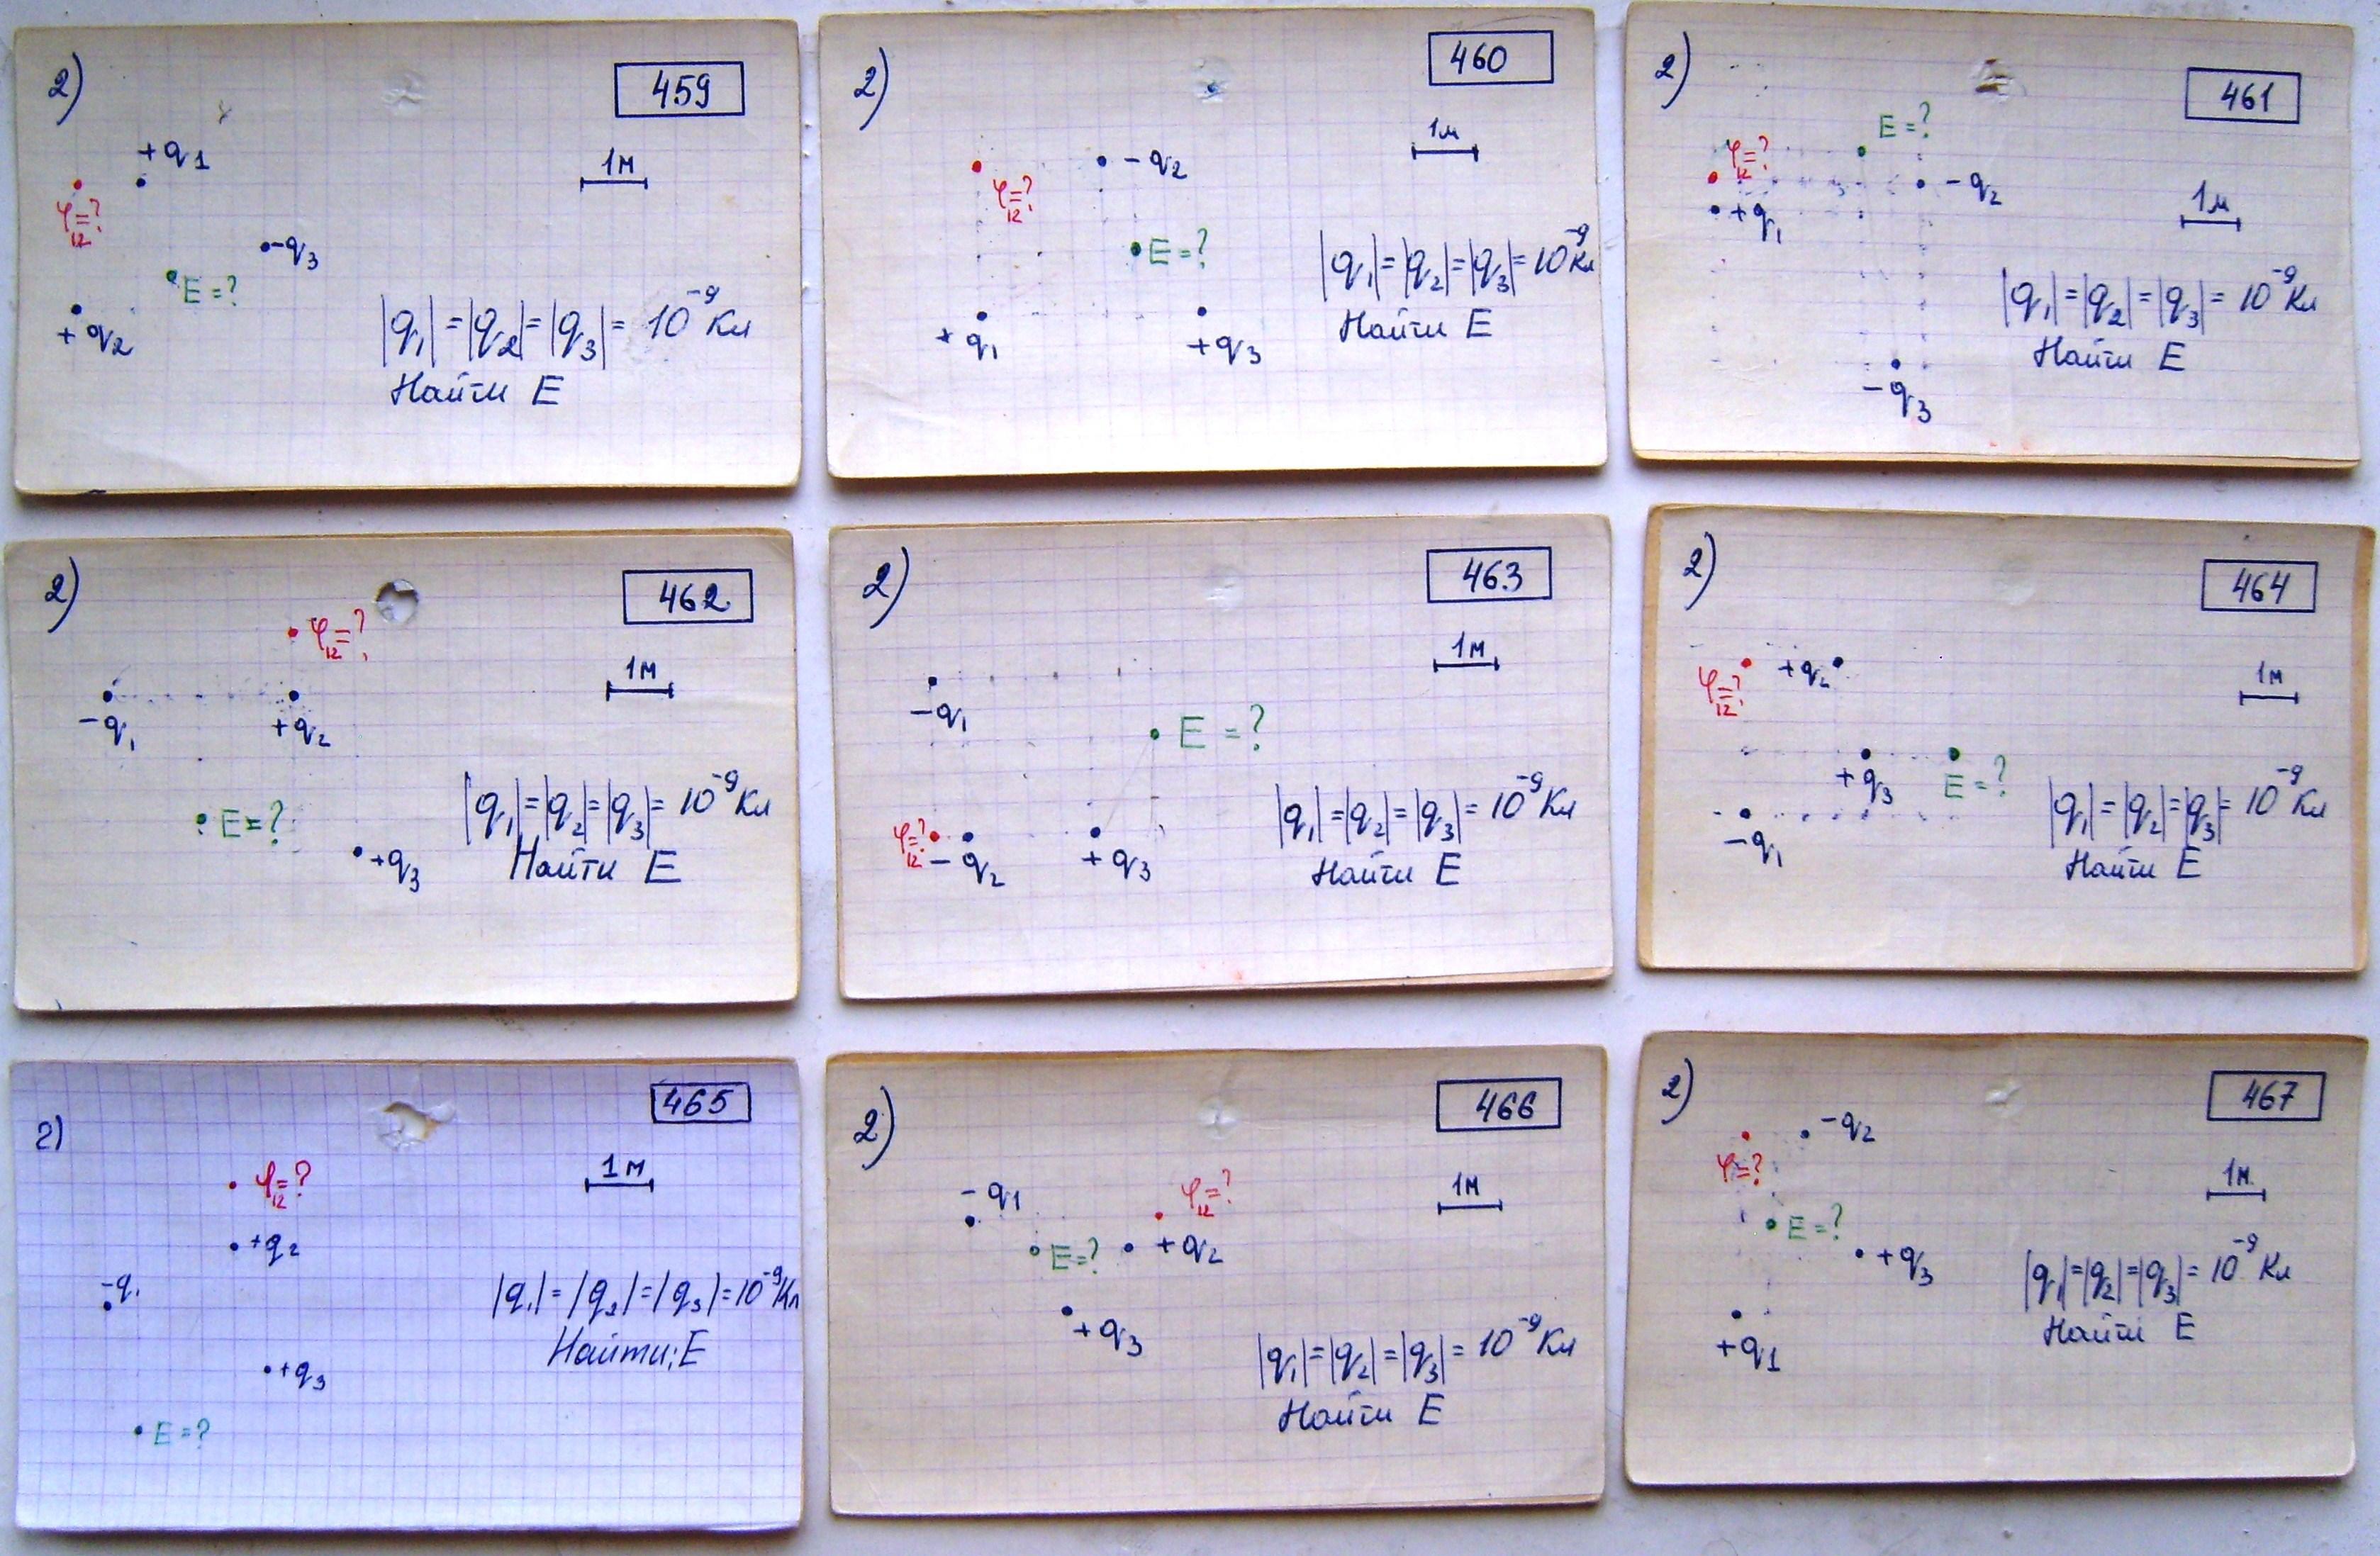 2)
459
+q1
1м
φ12=?
-q3
E=?
+q2
|q1|=|q2|=|q3|= 10^-9 Кл
Найти E
2)
460
1м
-q2
φ12=?
E=?
|q1|=|q2|=|q3|=10^-9 Кл
Найти E
+q1
+q3
2)
461
E=?
φ12=?
-q2
+q1
1м
|q1|=|q2|=|q3|= 10^-9 Кл
Найти E
-q3
2)
462
φ12=?
1м
-q1
+q2
E=?
|q1|=|q2|=|q3|= 10^-9 Кл
Найти E
+q3
2)
463
1м
-q1
E=?
|q1|=|q2|=|q3|= 10^-9 Кл
φ12=?
-q2
+q3
Найти E
2)
464
φ12=?
+q2
1м
+q3
E=?
|q1|=|q2|=|q3|= 10^-9 Кл
-q1
Найти E
2)
465
φ12=?
1м
+q2
-q1
|q1|=|q2|=|q3|=10^-9 Кл
Найти; E
+q3
E=?
2)
466
-q1
φ12=?
1м
E=?
+q2
+q3
|q1|=|q2|=|q3|= 10^-9 Кл
Найти E
2)
467
-q2
φ=?
1м
E=?
+q3
|q1|=|q2|=|q3|= 10^-9 Кл
Найти E
+q1